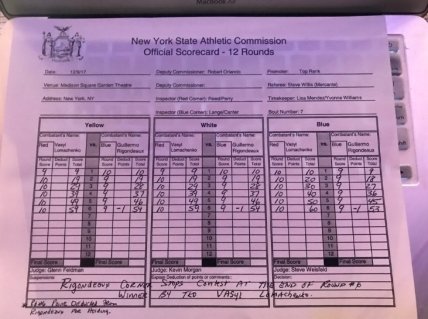 MacBook Air
New York State Athletic Commission
Official Scorecard - 12 Rounds
Date: 12/9/17 Deputy Commissioner: Robert Orlando Promoter: Top Rank
Venue: Madison Square Garden Theatre Deputy Commissioner: Referee: Steve Willis (Mercante)
Address: New York, NY Inspector (Red Corner): Reed/Perry Timekeeper: Lisa Mendez/Yvonne Williams
Inspector (Blue Corner): Lange/Center Bout Number: 7
Yellow White Blue
Combatant's Name: Combatant's Name: Combatant's Name: Combatant's Name: Combatant's Name: Combatant's Name:
Red Vasyl Lomachenko vs. Blue Guillermo Rigondeaux Red Vasyl Lomachenko vs. Blue Guillermo Rigondeaux Red Vasyl Lomachenko vs. Blue Guillermo Rigondeaux
Round Score Deduct Points Score Total Round Score Deduct Points Score Total Round Score Deduct Points Score Total Round Score Deduct Points Score Total Round Score Deduct Points Score Total Round Score Deduct Points Score Total
9 9 1 10 10 9 9 1 10 10 10 10 1 9 9
10 19 2 9 19 10 19 2 9 19 10 20 2 9 18
10 29 3 9 28 10 29 3 9 28 10 30 3 9 27
10 39 4 9 37 10 39 4 9 37 10 40 4 9 36
10 49 5 9 46 10 49 5 9 46 10 50 5 9 45
10 59 6 9 -1 54 10 59 6 9 -1 54 10 60 6 9 -1 53
7 7 7
8 8 8
9 9 9
10 10 10
11 11 11
12 12 12
Final Score: Final Score: Final Score: Final Score: Final Score: Final Score:
Judge: Glenn Feldman Judge: Kevin Morgan Judge: Steve Weisfeld
RIGONDEAUX CORNER STOPS CONTEST AT THE END OF ROUND #6
WINNER BY TKO VASYL LOMACHENKO.
* Point Deducted From
Rigondeaux For Holding.